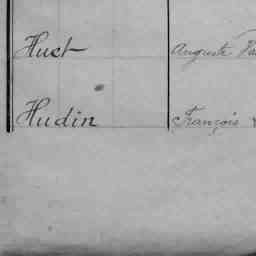 Huet Auguste
Hudin François